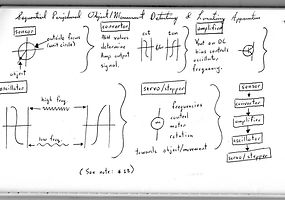 Sequential Peripheral Object/Movement Detecting & Locating Apparatus
sensor
outside focus
(unit circle)
object
converter
Add values
determine
damp output
signal.
sat
amplified
Vout on DC
bias controls
oscillator
frequency.
oscillator
high freq.
low freq.
servo/stepper
frequencies
control
motor
rotation
towards object/movement
sensor
converter
amplifier
oscillator
servo/stepper
(See note: #13)